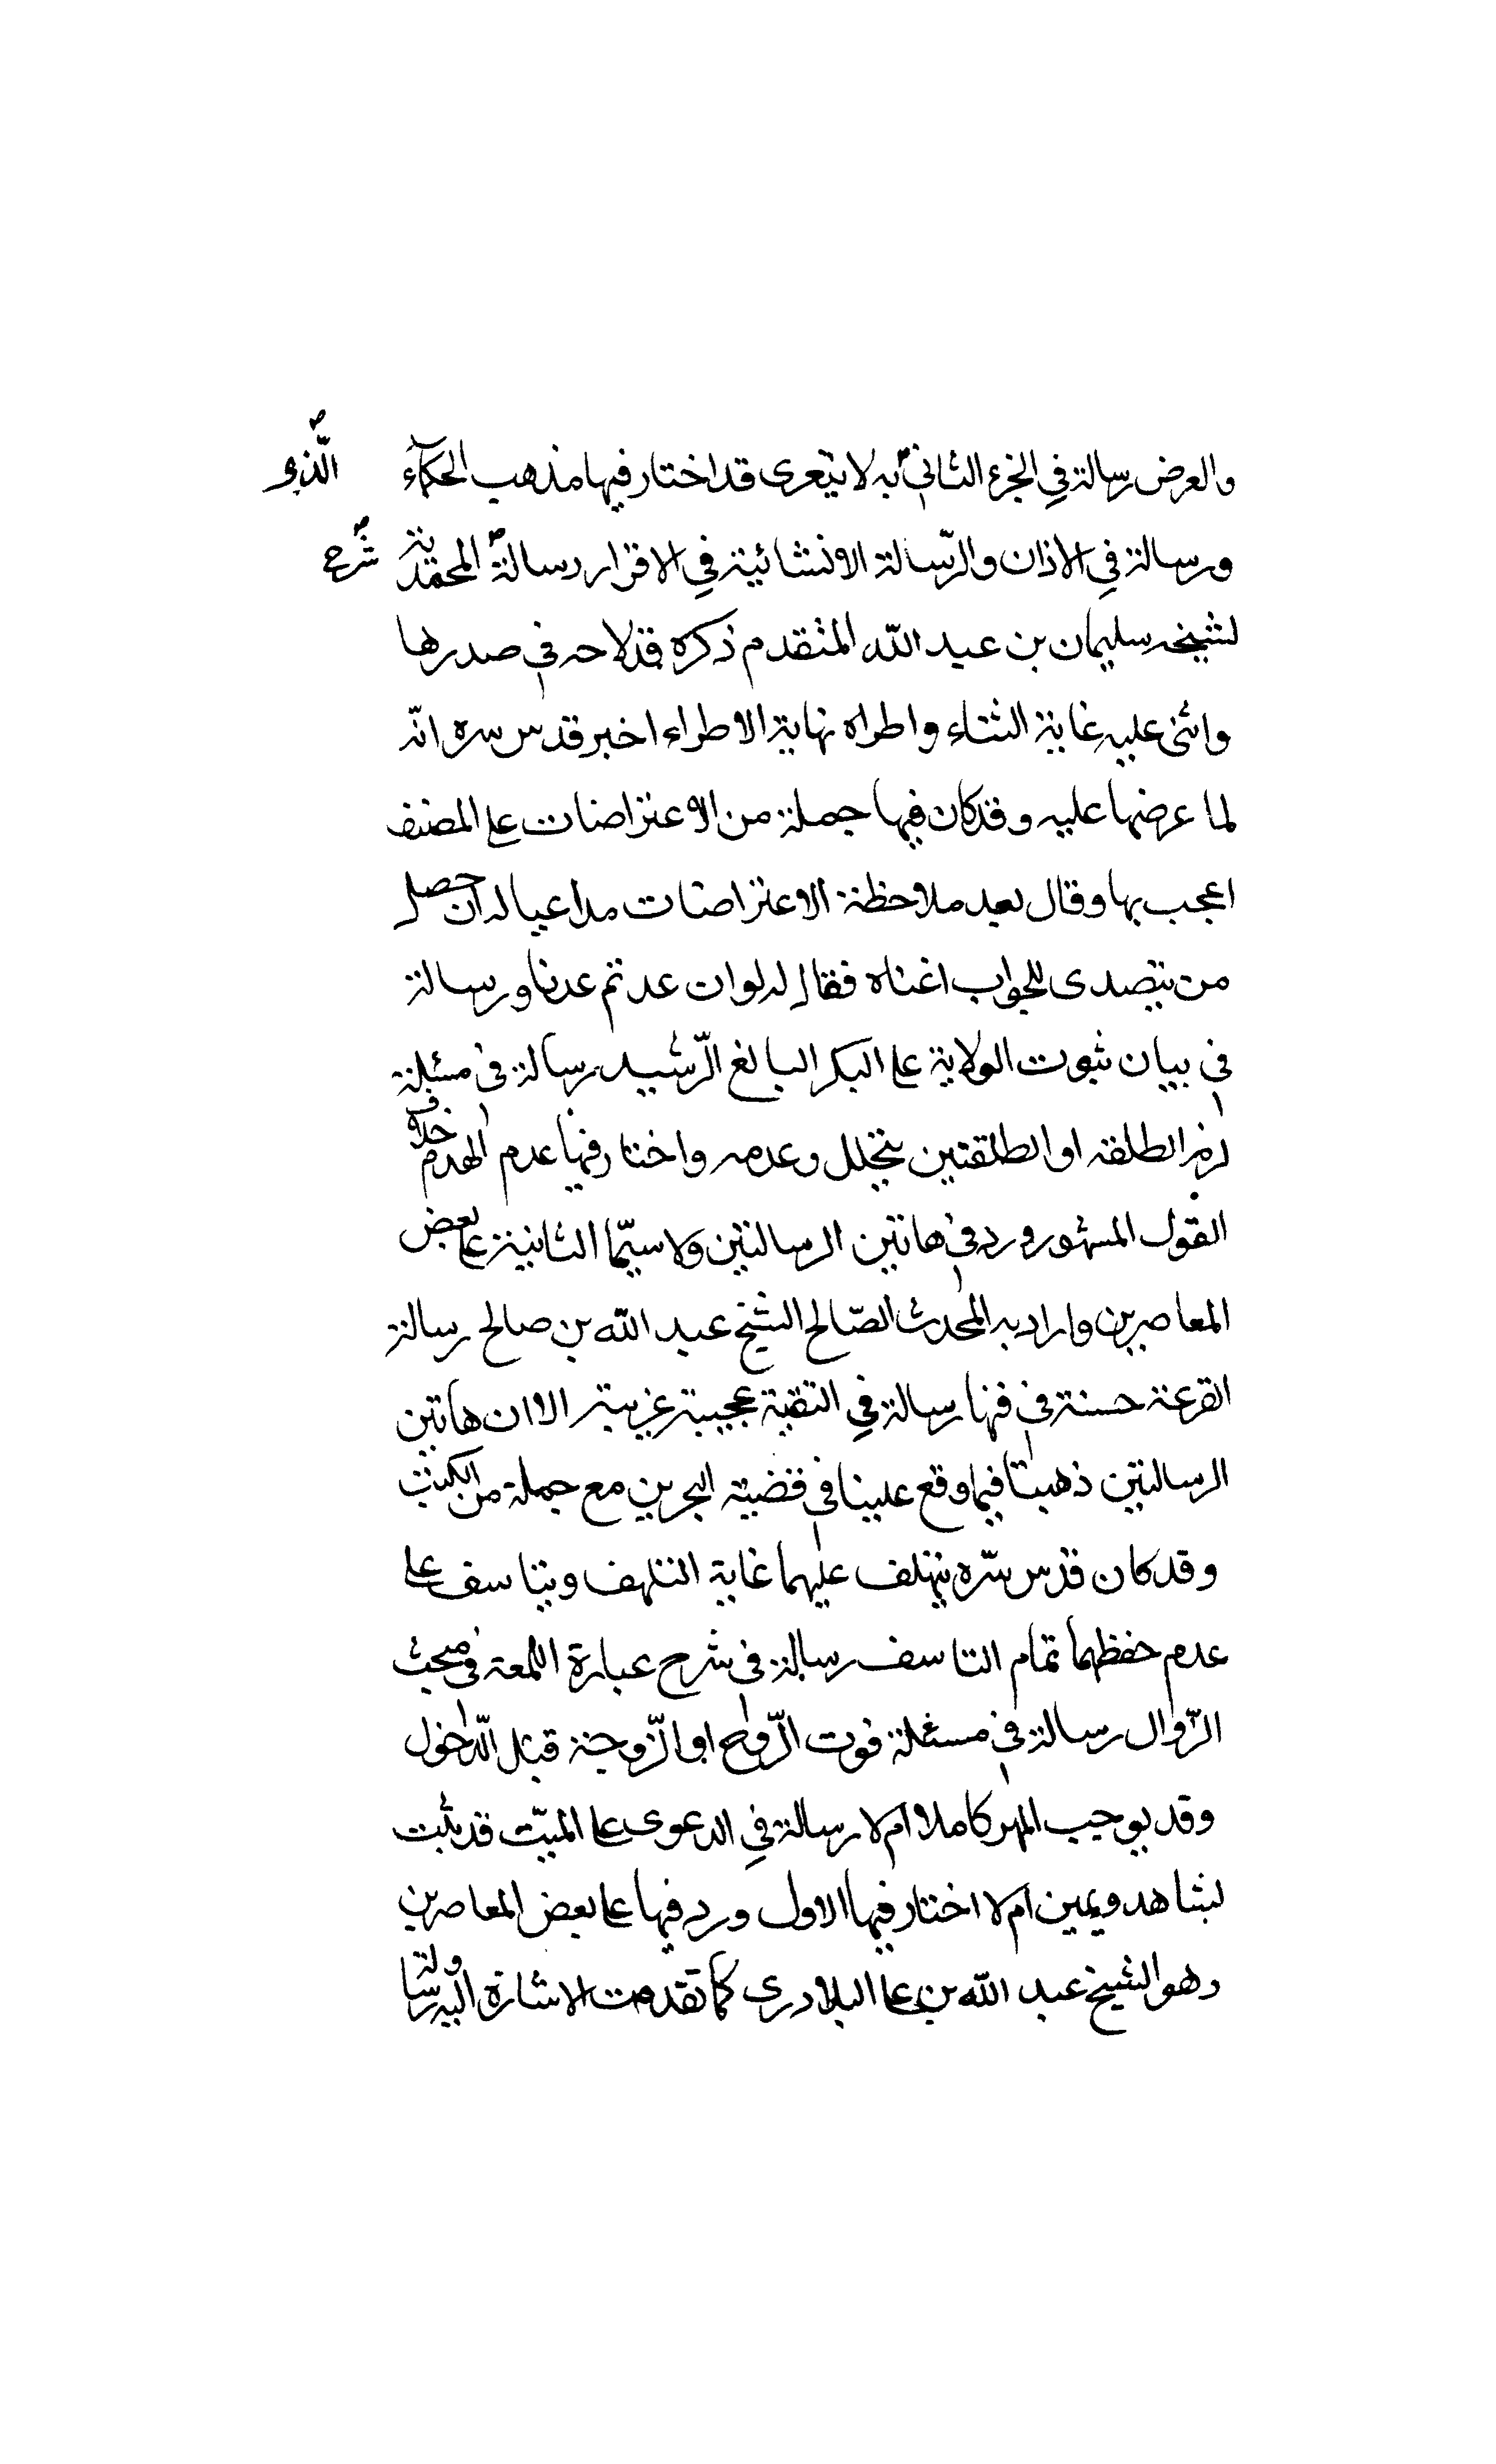 والعرض رسالة في الجزء الثاني به لا يتعرى قد اختار فيها مذهب الحكماء الذي
ورسالة في الاذان والرّسالة الانشائية في الاقرار رسالة المحمدية شرح
لشيخه سليمان بن عبد الله المتقدم ذكره قد لاحه في صدرها
واثنى عليه غاية الثناء واطراه نهاية الاطراء اخبر قدس سره انّه
لما عرضها عليه وقد كان فيها جملة من الاعتراضات على المصنف
اعجب بها وقال بعد ملاحظة الاعتراضات مداعبا له ان حصل
من يتصدى للجواب اغناه فقال له لو ان عدتم عدنا ورسالة
في بيان ثبوت الولاية على البكر البالغ الرّشيد رسالة في مسئلة
الطلقه او الطلقتين بتخلل وعدمه واختار فيها عدم الهدم خلاف
القول المشهور ورد في هاتين الرسالتين ولا سيّما الثانية على بعض
المعاصرين واراد به المحدث الصّالح الشيخ عبد الله بن صالح رسالة
القرعة حسنة في فنها رسالة في التقية عجيبة غريبة الا ان هاتين
الرسالتين ذهبتا فيما وقع علينا في قضية البحرين مع جملة من الكتب
وقد كان قدس سّره يتهلف عليهما غاية التلهف ويتاسف على
عدم حفظهما تمام التاسف رسالة في شرح عبارة اللمعة في مبحث
الزّوال رسالة في مسئلة فوت الزّوج او الزّوجة قبل الدّخول
وقد يوجب المهر كاملا ام لا رسالة في الدعوى على الميّت قد يثبت
بشاهد ويمين ام لا اختار فيها الاول ورد فيها على بعض المعاصرين
وهو الشيخ عبد الله بن على البلادرى كما تقدمت الاشارة اليه رسالة